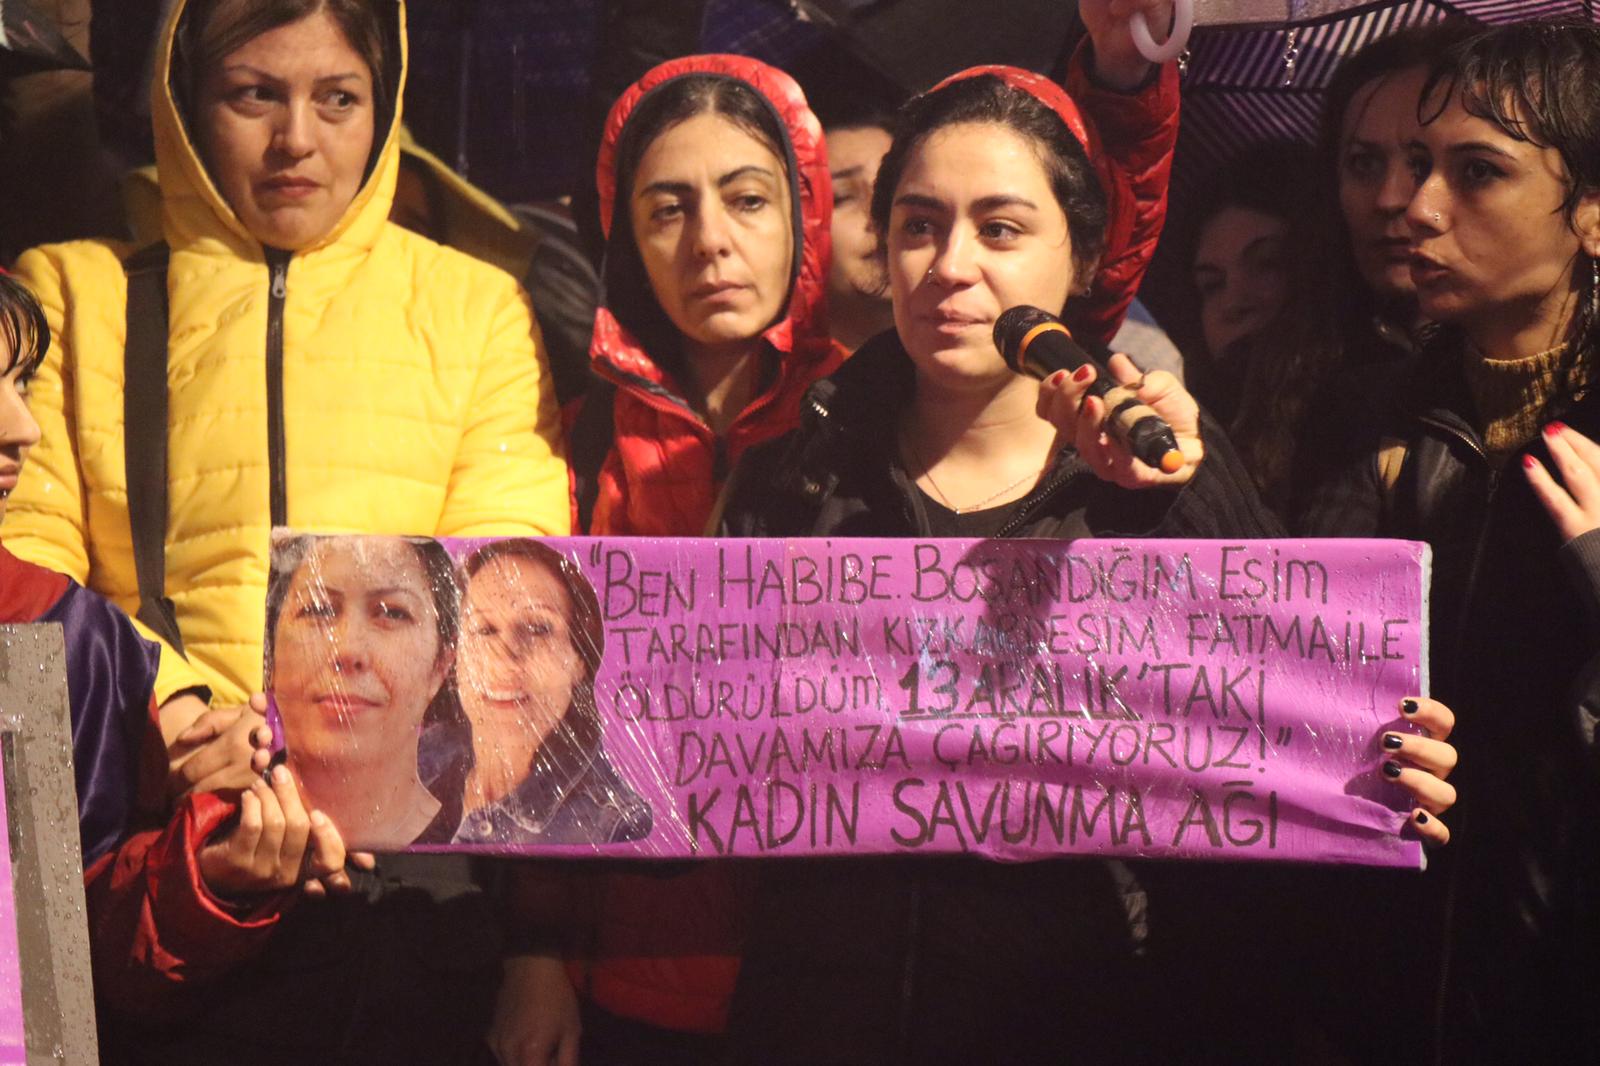 "BEN HABİBE. BOŞANDIĞIM EŞİM
TARAFINDAN KIZKARDEŞİM FATMA İLE
ÖLDÜRÜLDÜM. 13 ARALIK'TAKİ
DAVAMIZA ÇAĞIRIYORUZ!"
KADIN SAVUNMA AĞI